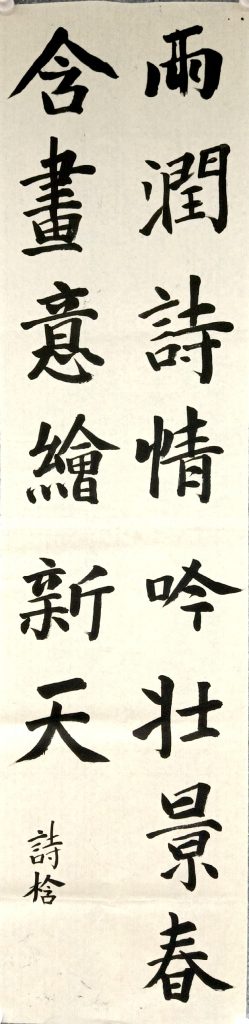 雨潤詩情吟壯景春
含畫意繪新天
詩梒